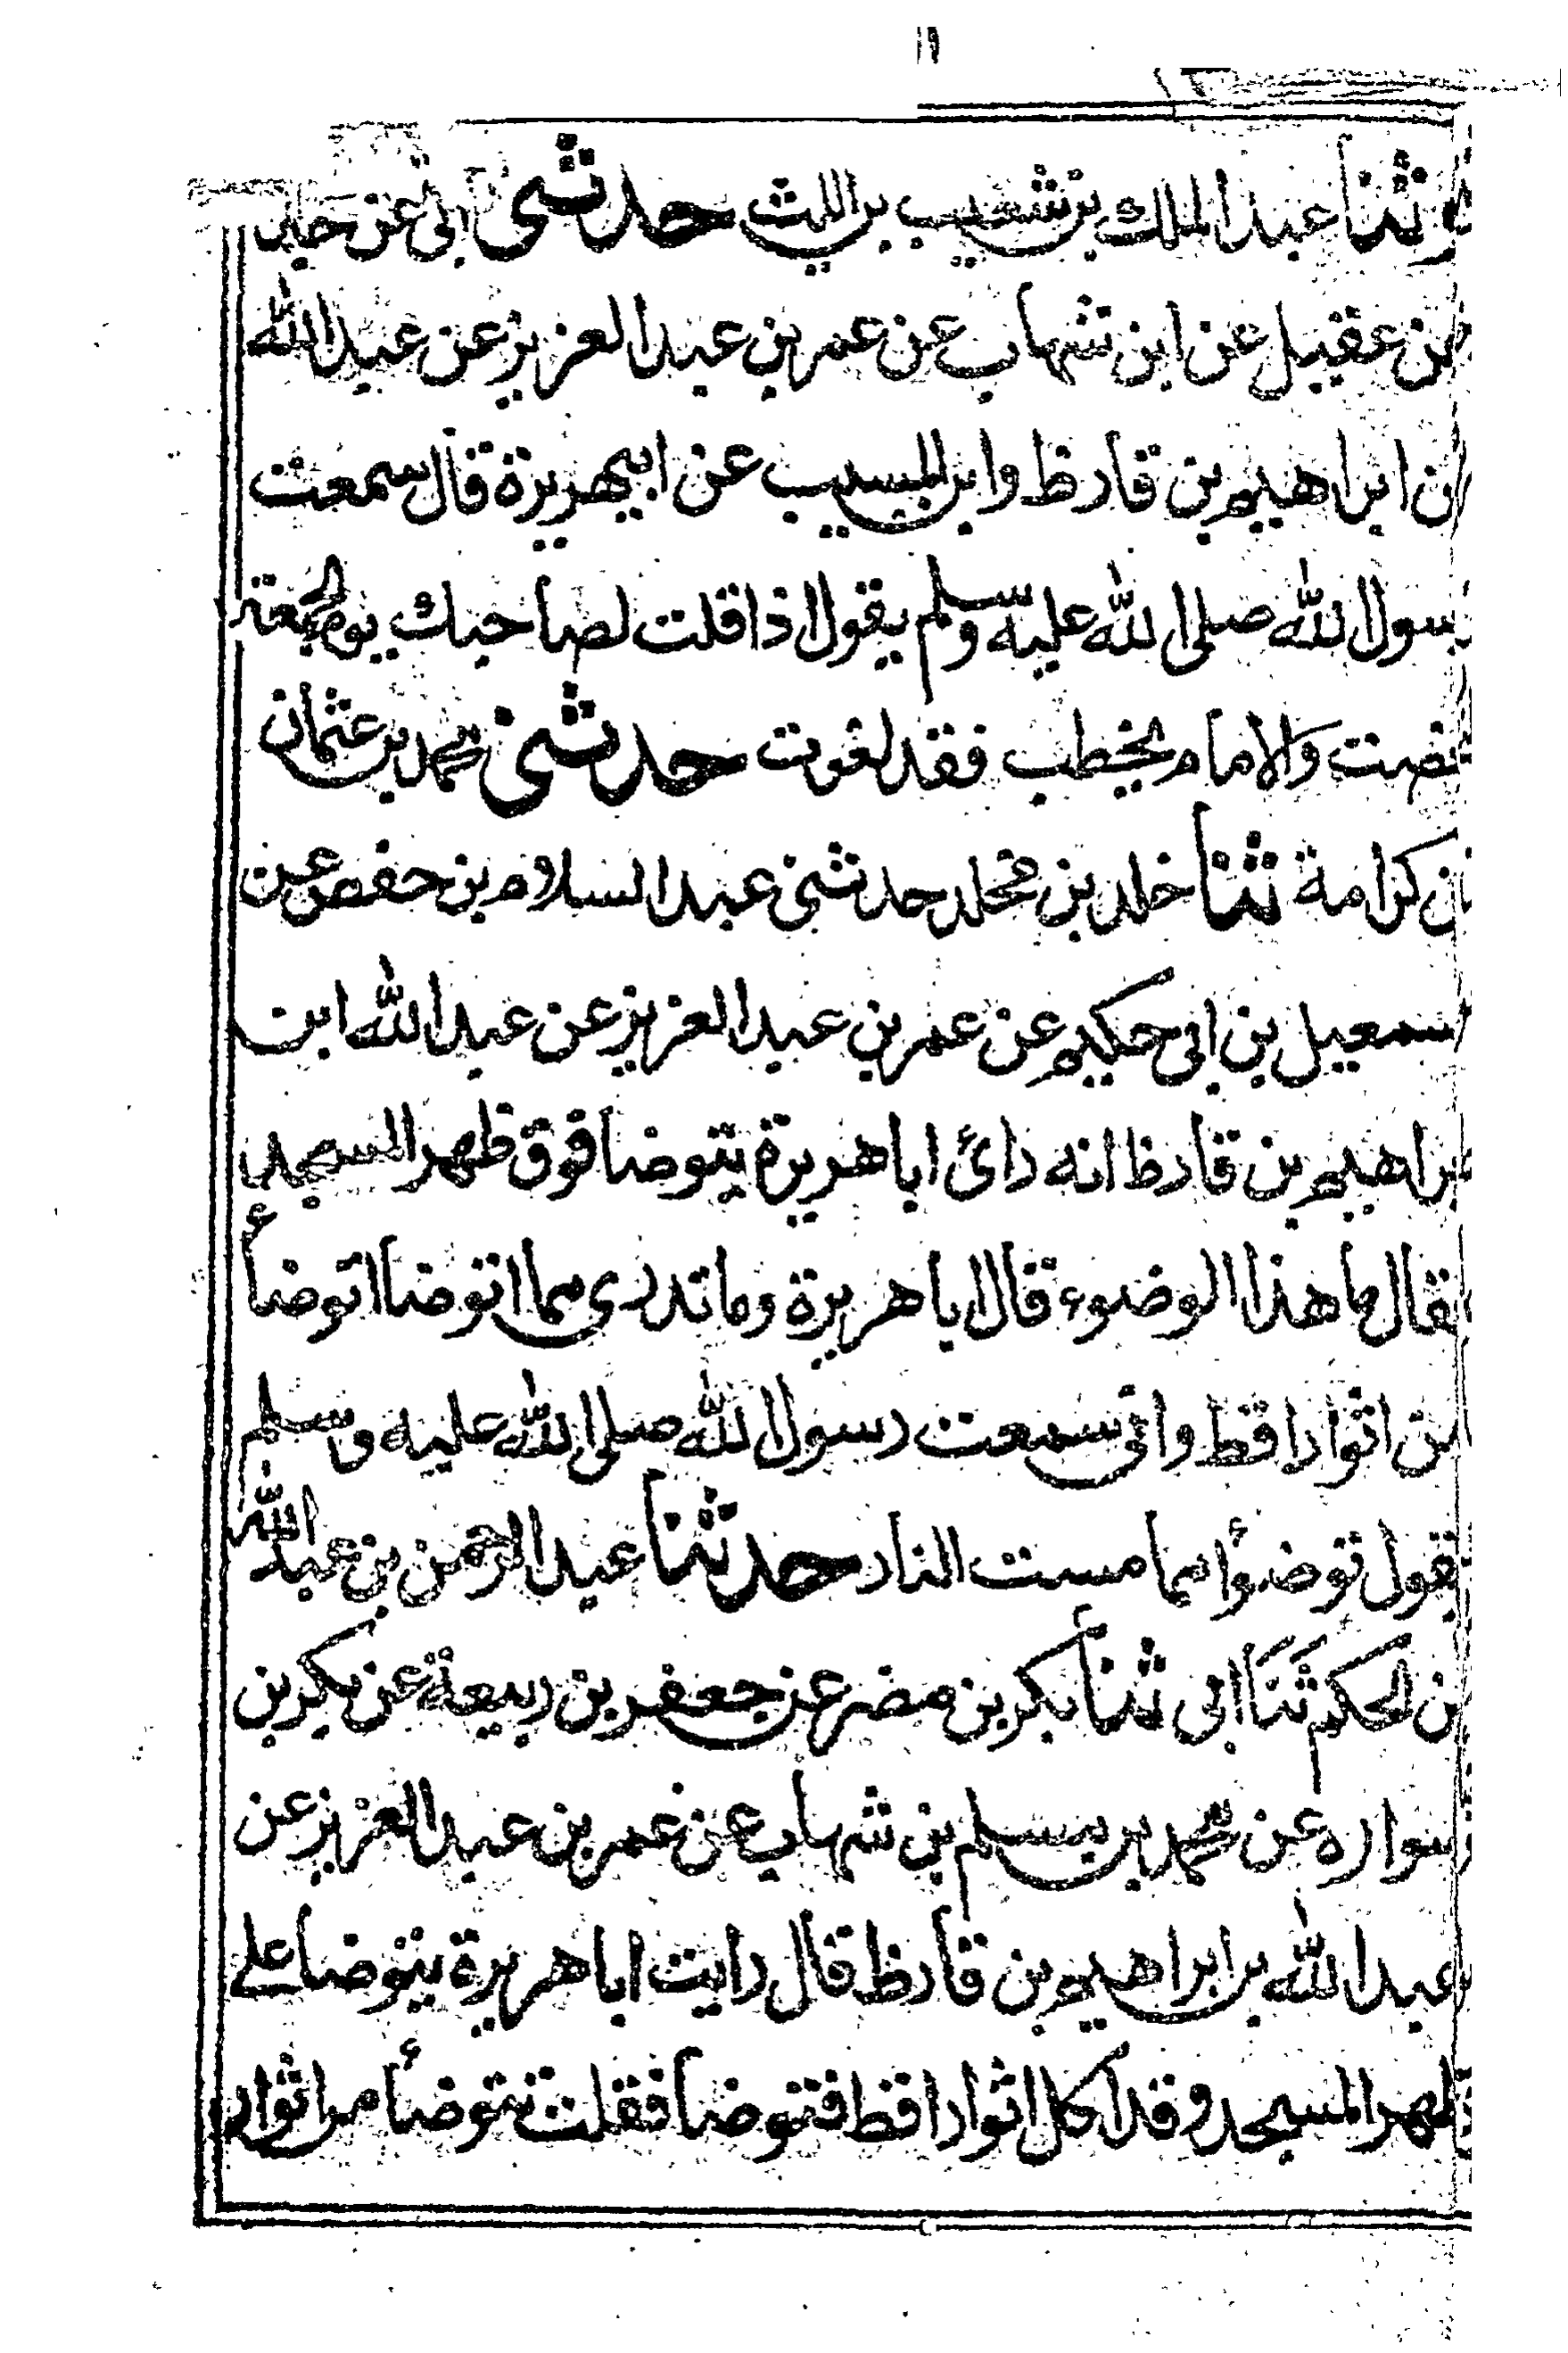 ثنا عبد الملك بن شعيب بن الليث حدثني ابي عن جدي
عن عقيل عن ابن شهاب عن عمر بن عبد العزيز عن عبد الله
بن ابراهيم بن قارظ وابن المسيب عن ابي هريرة قال سمعت
رسول الله صلى الله عليه وسلم يقول اذا قلت لصاحبك يوم الجمعة
انصت والامام يخطب فقد لغوت حدثني محمد بن عثمان
بن كرامة ثنا خلد بن مخلد حدثني عبد السلام بن حفص عن
اسمعيل بن ابي حكيم عن عمر بن عبد العزيز عن عبد الله ابن
ابراهيم بن قارظ انه رائ ابا هريرة يتوضا فوق ظهر المسجد
فقال ما هذا الوضوء قال ابا هريرة وما تدري مما اتوضا اتوضأ
من اثوار اقط واني سمعت رسول الله صلى الله عليه وسلم
يقول توضؤا مما مست النار حدثنا عبد الرحمن بن عبد الله
بن الحكم ثنا ابي ثنا بكر بن مضر عن جعفر بن ربيعة عن بكر بن
سواره عن محمد بن مسلم بن شهاب عن عمر بن عبد العزيز عن
عبد الله بن ابراهيم بن قارظ قال رايت ابا هريرة يتوضا على
ظهر المسجد وقد اكل اثوار اقط فتوضا فقلت تتوضأ من اثوار